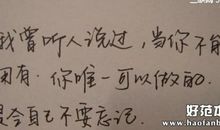 我曾听人说过,当你不能
拥有.你唯一可以做的.
是令自己不要忘记.
好范本
www.haofanben